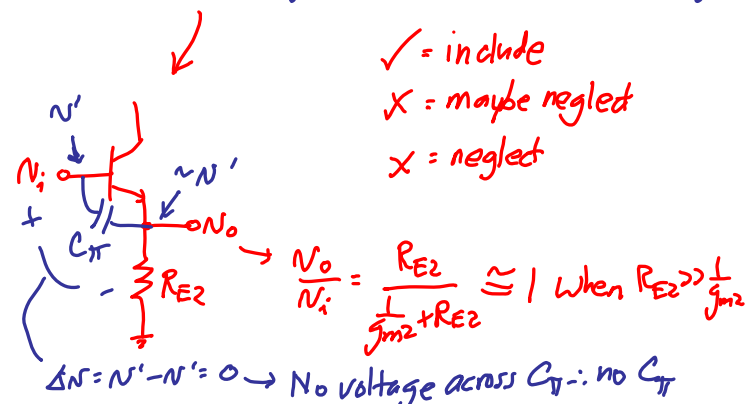 ✓ = include
x = maybe neglect
x = neglect
v'
v_i
+
~v'
C_π
v_o
-
R_E2
v_o / v_i = R_E2 / (1/g_m2 + R_E2) ≅ 1 when R_E2 >> 1/g_m2
Δv = v' - v' = 0 → No voltage across C_π ∴ no C_π